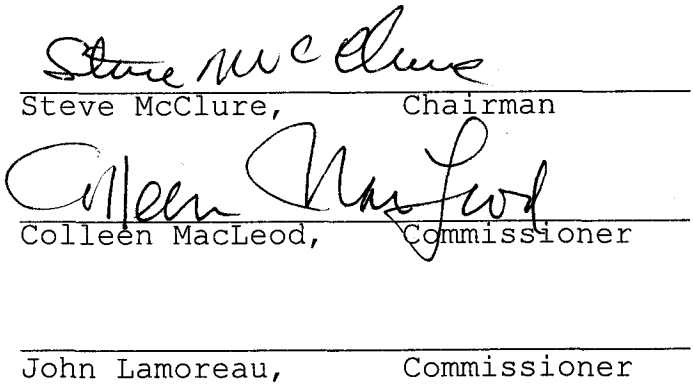 Steve McClure
Steve McClure, Chairman
Colleen MacLeod
Colleen MacLeod, Commissioner
John Lamoreau, Commissioner